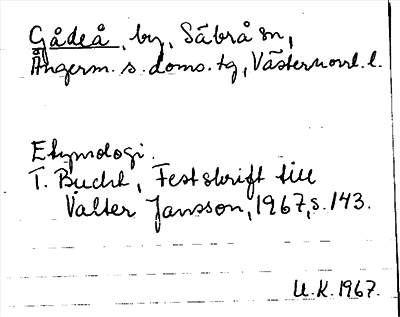 Gådeå, by, Säbrå sn,
Ångerm. s. doms. tg, Västernorrl. l.
Etymologi.
T. Bucht, Festskrift till
Valter Jansson, 1967, s. 143.
U.K. 1967.